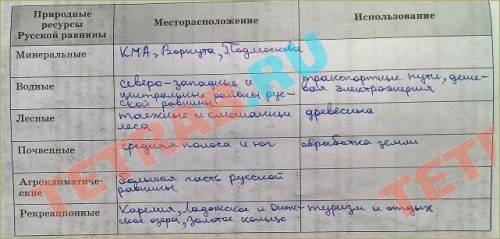 Природные
ресурсы
Русской равнины
Месторасположение
Использование
Минеральные
КМА, Воркута, Подмосковье
Водные
северо-западные и
центральные районы рус-
ской равнины
транспортные пути, деше-
вая электроэнергия
Лесные
таежные и смешанные
леса
древесина
Почвенные
средняя полоса и юг
обработка земли
Агроклиматиче-
ские
большая часть русской
равнины
Рекреационные
Карелия, Ладожское и Онеж-
ское озера, золотое кольцо
туризм и отдых
TETRADI.RU
TETR